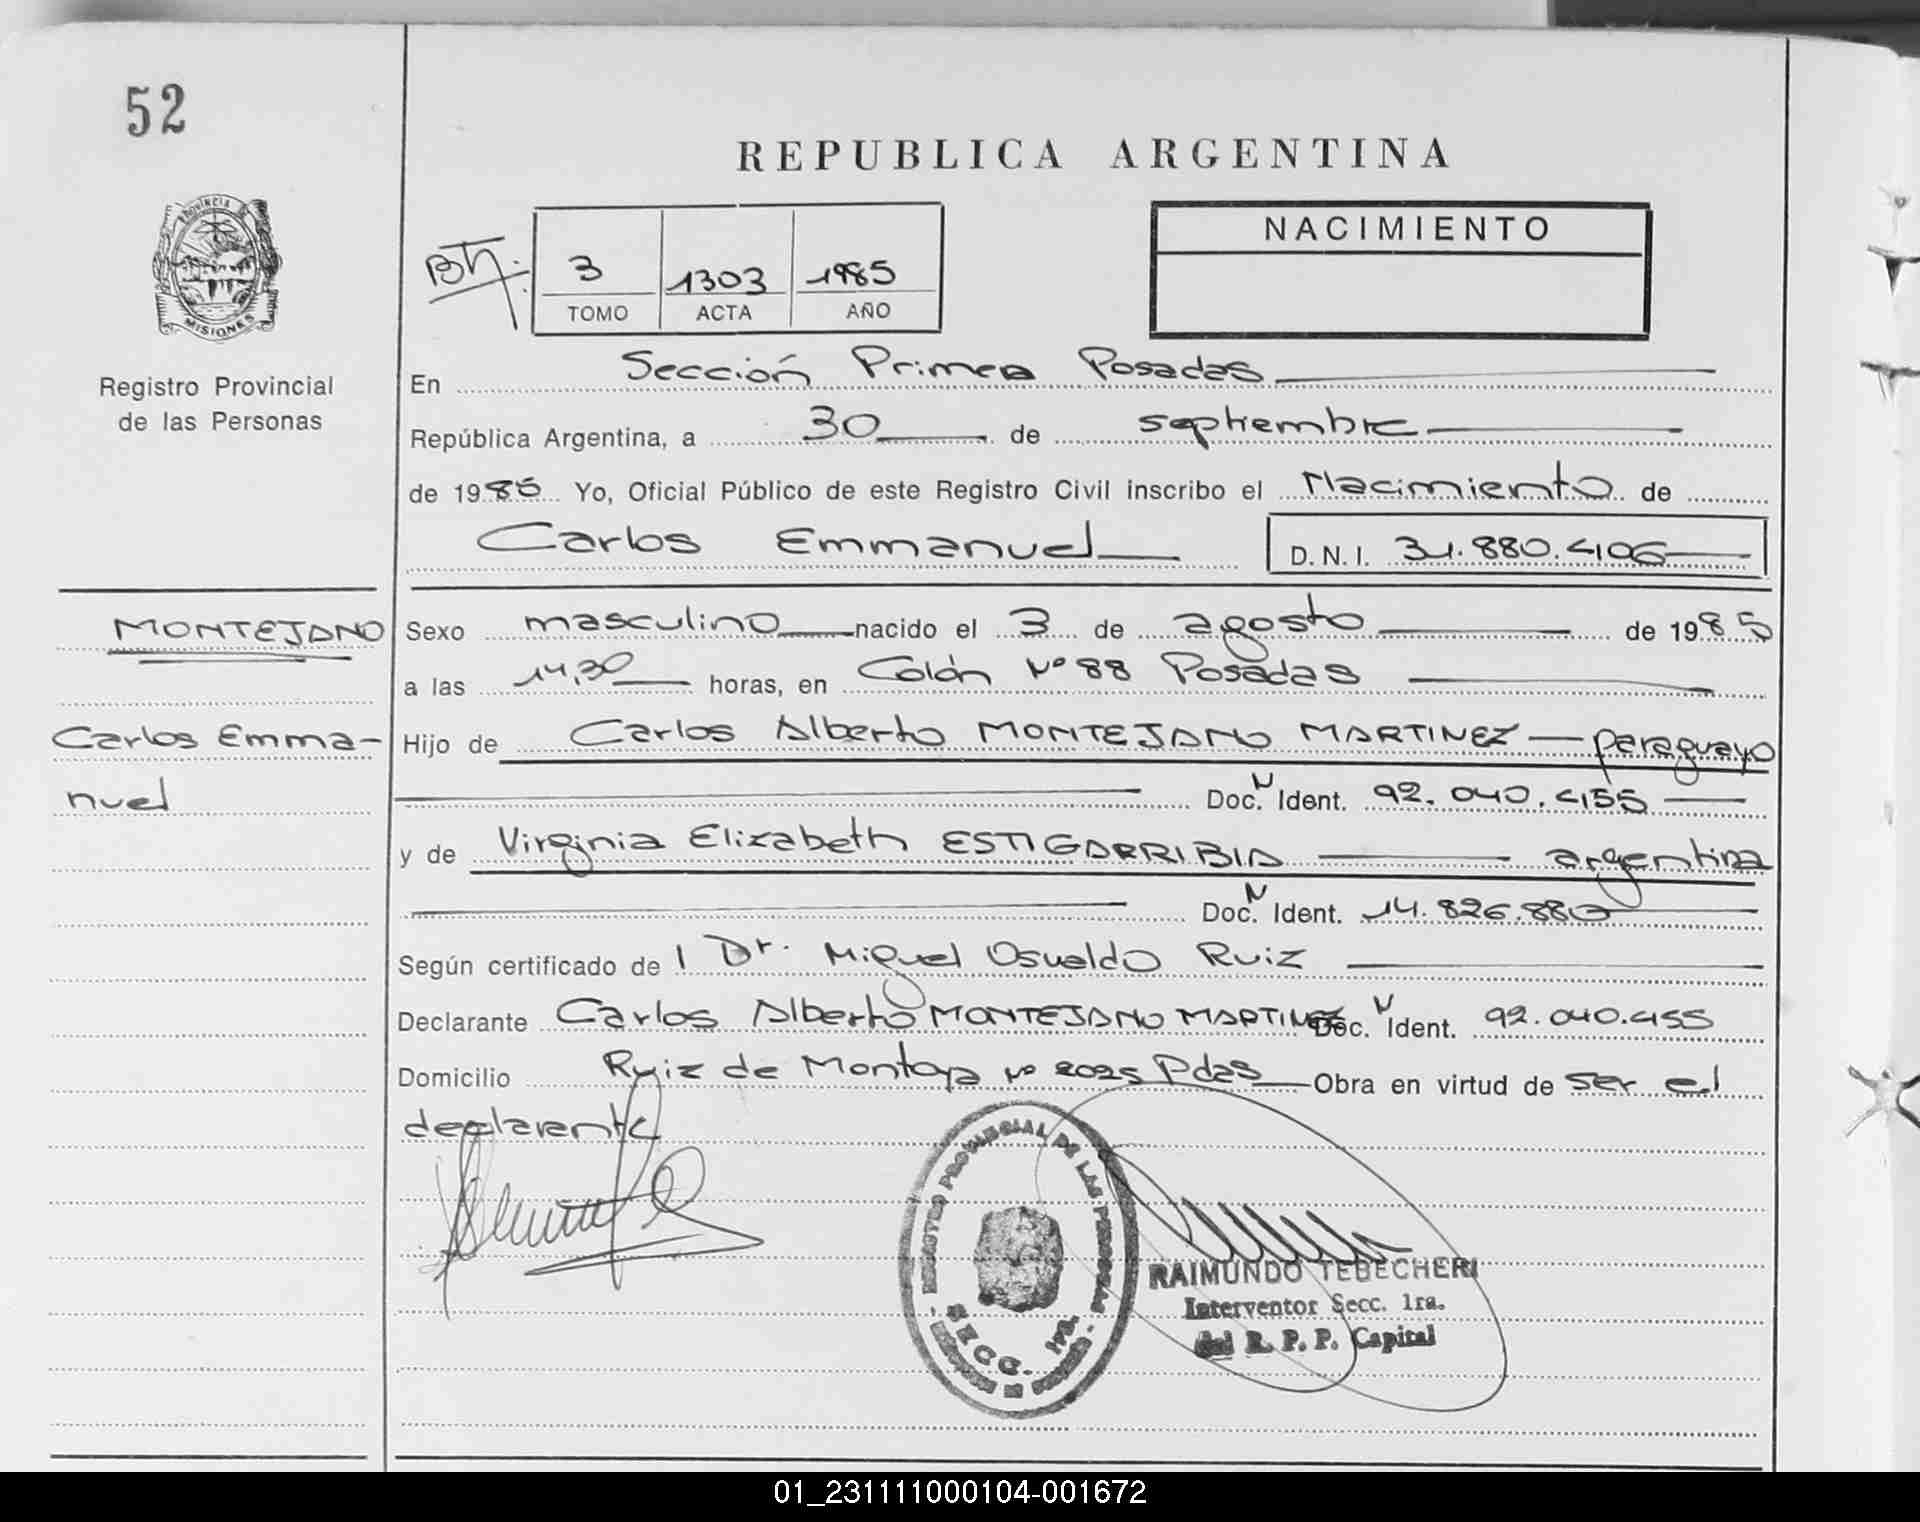 52
REPUBLICA ARGENTINA
PROVINCIA DE
MISIONES
Registro Provincial
de las Personas
3 1303 1985
TOMO ACTA AÑO
NACIMIENTO
En Sección Primera Posadas
República Argentina, a 30 de septiembre
de 1985 Yo, Oficial Público de este Registro Civil inscribo el Nacimiento de
Carlos Emmanuel D.N.I. 31.880.406
MONTEJANO
Carlos Emma-
nuel
Sexo masculino nacido el 3 de agosto de 1985
a las 14,30 horas, en Colón Nº 88 Posadas
Hijo de Carlos Alberto MONTEJANO MARTINEZ paraguayo
Doc. N Ident. 92.040.455
y de Virginia Elizabeth ESTIGARRIBIA argentina
Doc. N Ident. 14.826.880
Según certificado de l Dr. Miguel Osvaldo Ruiz
Declarante Carlos Alberto MONTEJANO MARTINEZ Doc. N Ident. 92.040.455
Domicilio Ruiz de Montoya Nº 2025 Pdas Obra en virtud de ser el
declarante
REGISTRO PROVINCIAL DE LAS PERSONAS
SECC. 1ra.
RAIMUNDO TEBECHERI
Interventor Secc. 1ra.
del R. P. P. Capital
01_231111000104-001672